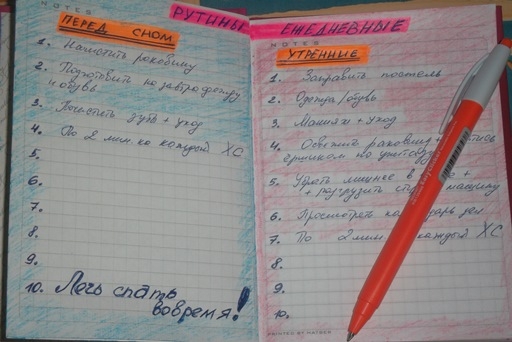 РУТИНЫ ЕЖЕДНЕВНЫЕ
NOTES
ПЕРЕД СНОМ
1. Начистить раковину
2. Подготовить на завтра одежду
и обувь
3. Почистить зубы + уход
4. По 2 мин. на каждый ХС
5.
6.
7.
8.
9.
10. Лечь спать
вовремя!
NOTES
УТРЕННИЕ
1. Заправить постель
2. Одежда/обувь
3. Макияж + уход
4. Освежить раковину +
ёршиком по унитазу
5. Убрать лишнее в +
+ разгрузить машину
6. Просмотреть календарь дел
7. По 2 мин. каждый ХС
8.
9.
10.
PRINTED BY